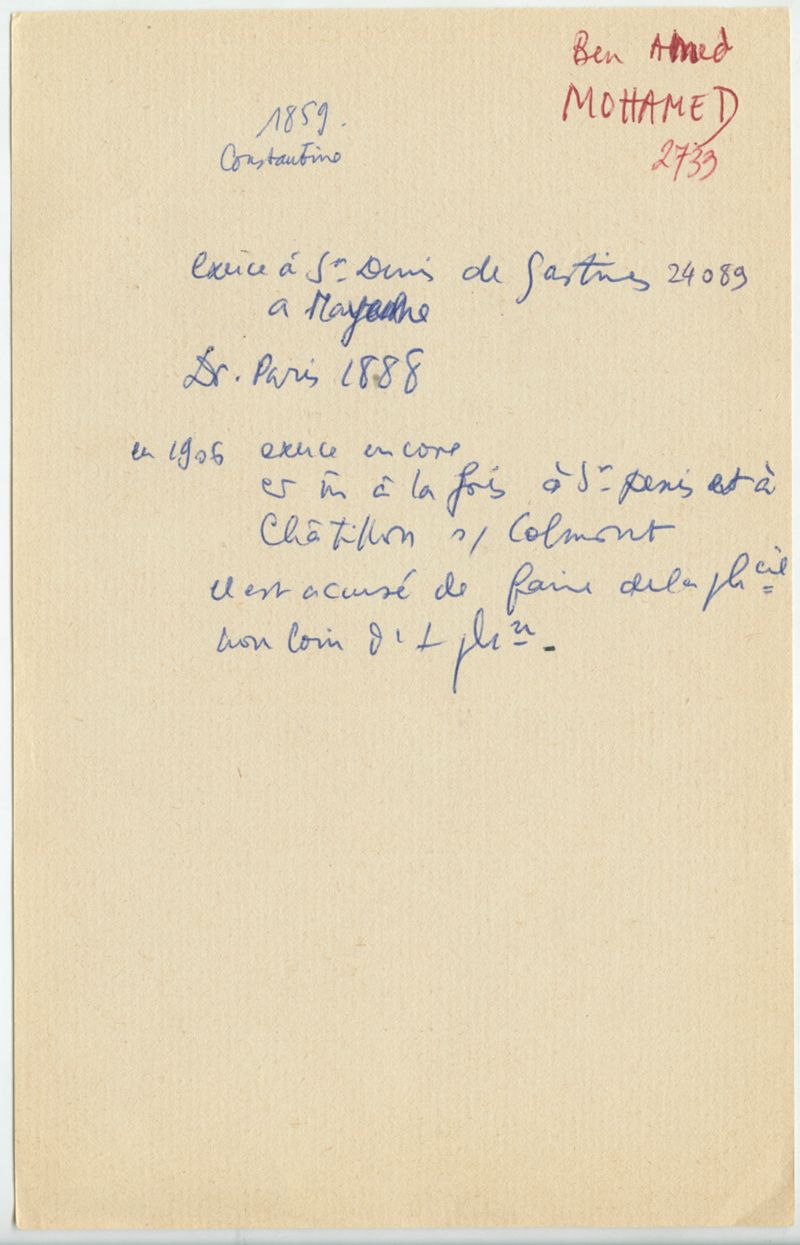 Ben Ahmed
MOHAMED
2733
1859.
Constantine
exerce à St Denis de Gastines 24089
a Mayenne
Dr. Paris 1888
en 1906 exerce encore
et à la fois à St Denis et à
Châtillon s/ Colmont
Il est accusé de faire de la phcie
non loin d'1 phien.